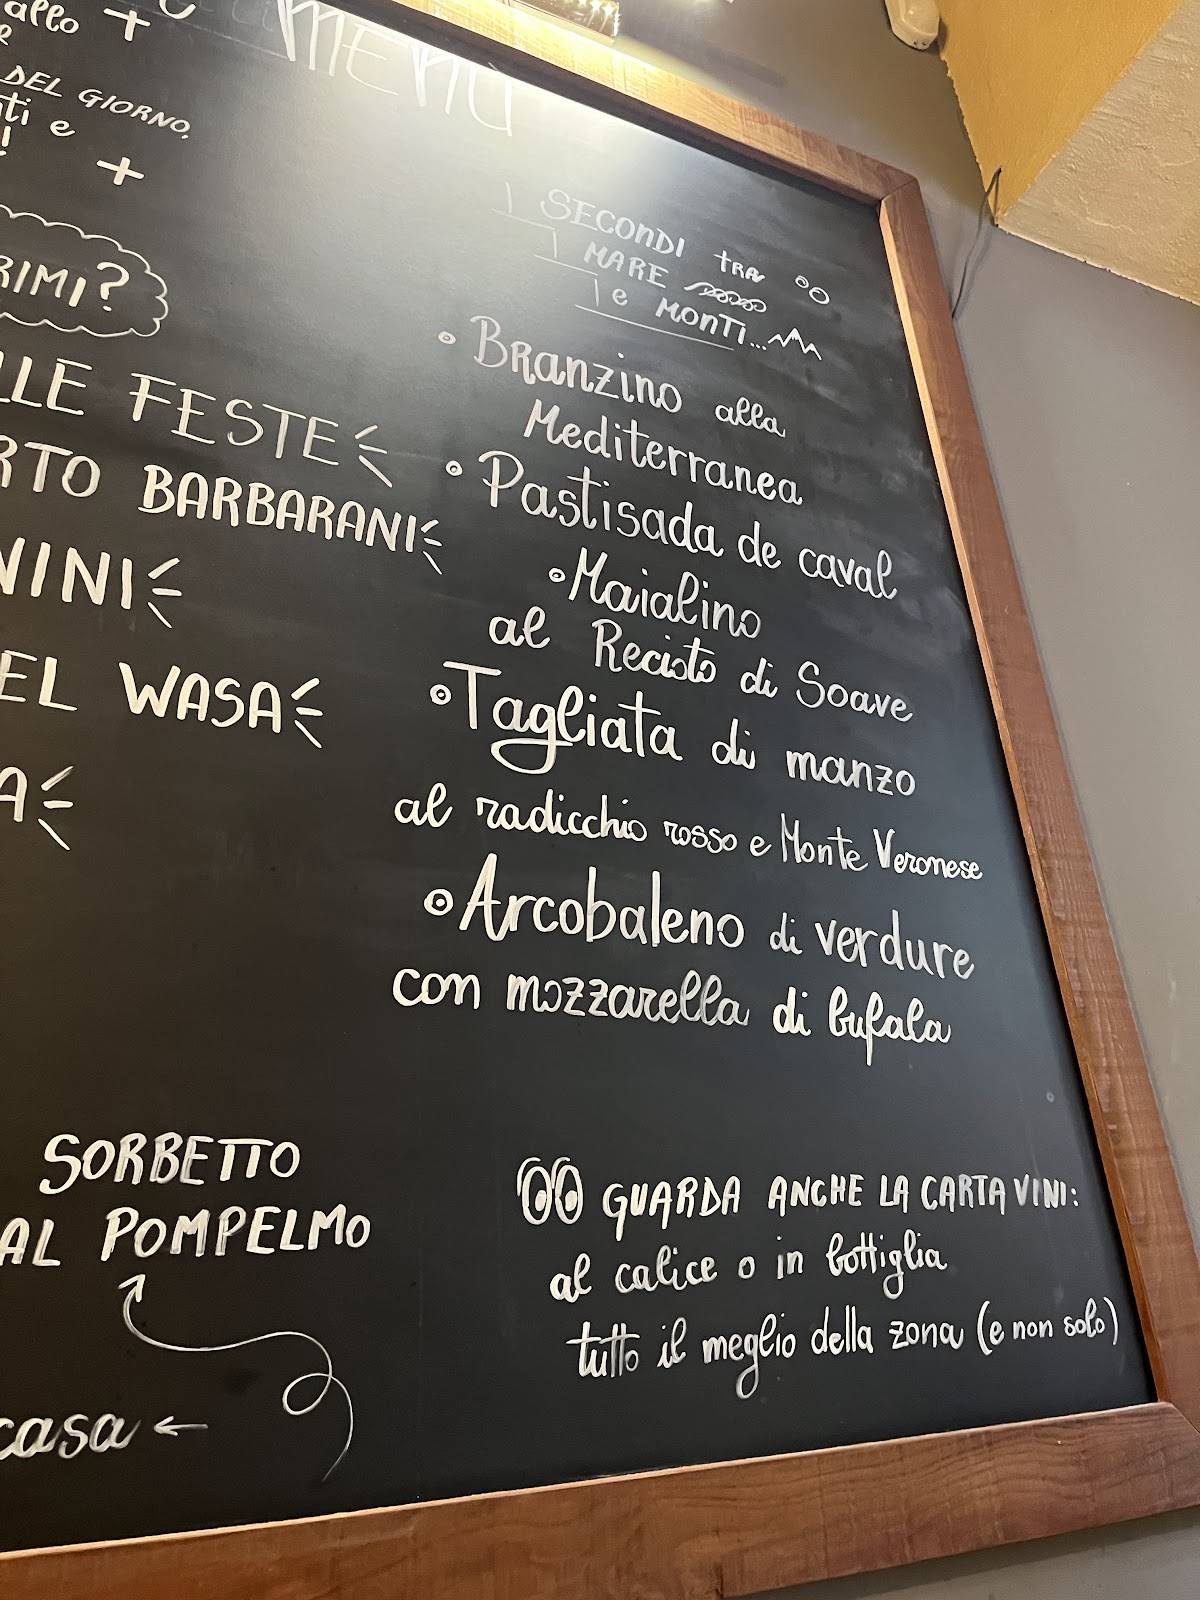 allo +
MENÙ
DEL GIORNO,
ti e
! +
RIMI?
LLE FESTE
RTO BARBARANI
NINI
EL WASA
A
SECONDI TRA
MARE
e MONTI...
Branzino alla
Mediterranea
Pastisada de caval
Maialino
al Recioto di Soave
Tagliata di manzo
al radicchio rosso e Monte Veronese
Arcobaleno di verdure
con mozzarella di bufala
SORBETTO
AL POMPELMO
casa ←
GUARDA ANCHE LA CARTA VINI:
al calice o in bottiglia
tutto il meglio della zona (e non solo)